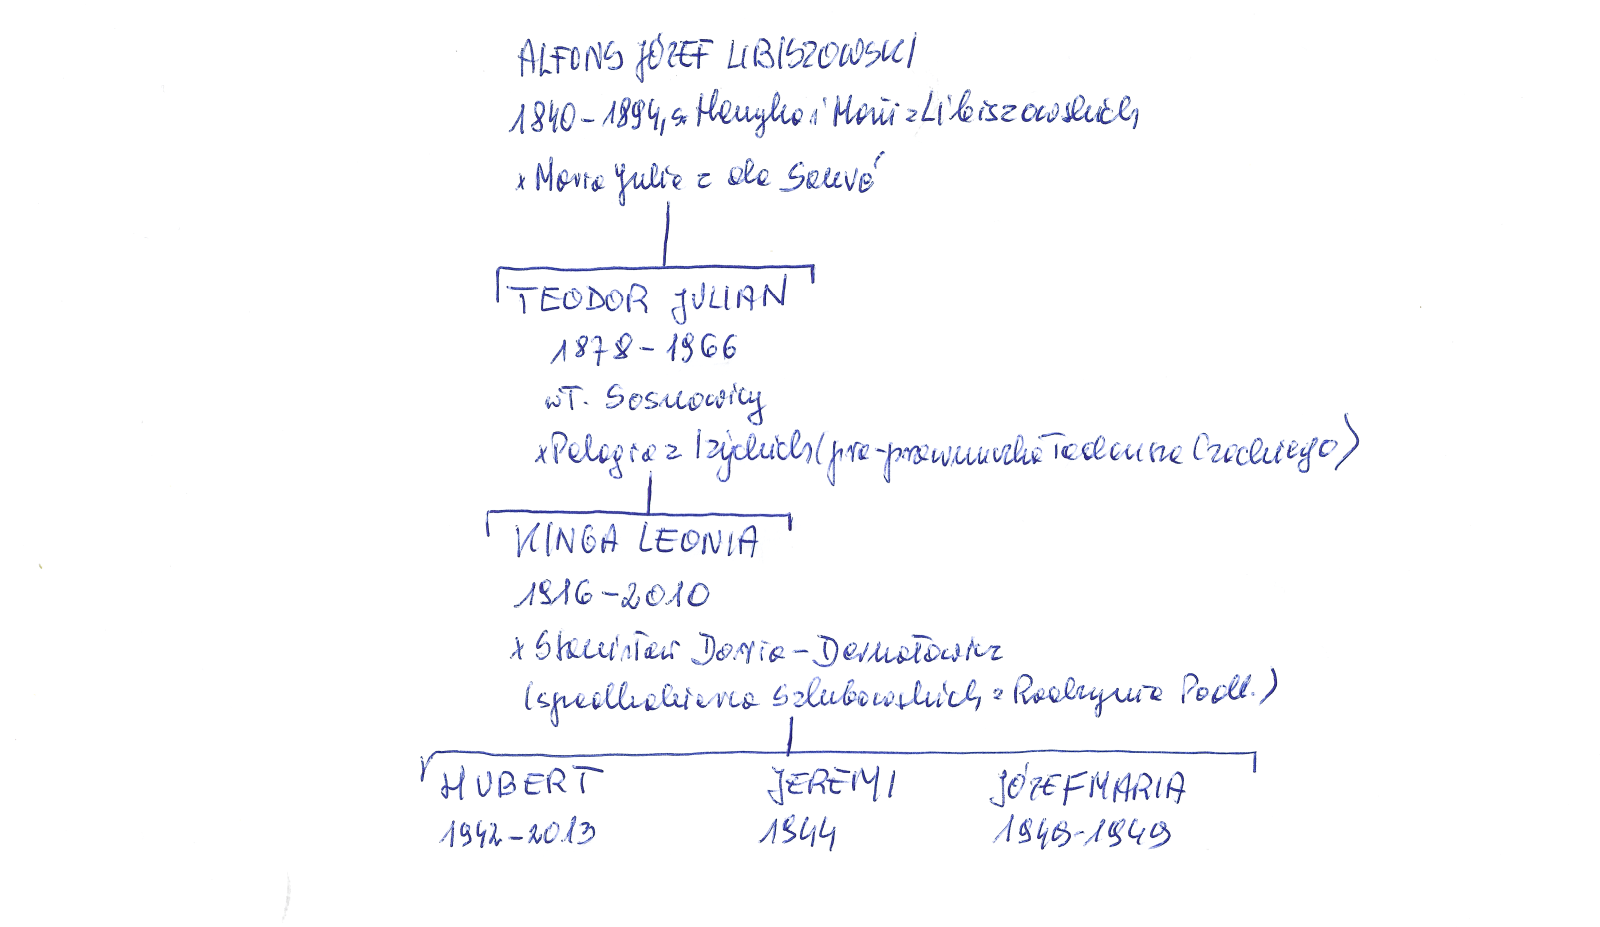 ALFONS JÓZEF LIBISZOWSKI
1840-1894, s. Henryka i Marii z Libiszowskich
x Maria Julia z de Sauvé
TEODOR JULIAN
1878-1966
wł. Sosnowicy
x Pelagia z Iżyckich (pra-prawnuczka Tadeusza Czackiego)
KINGA LEONIA
1916-2010
x Stanisław Doria-Dernałowicz
(spadkobierca Szlubowskich z Radzynia Podl.)
HUBERT JEREMI JÓZEF MARIA
1942-2013 1944 1949-1949